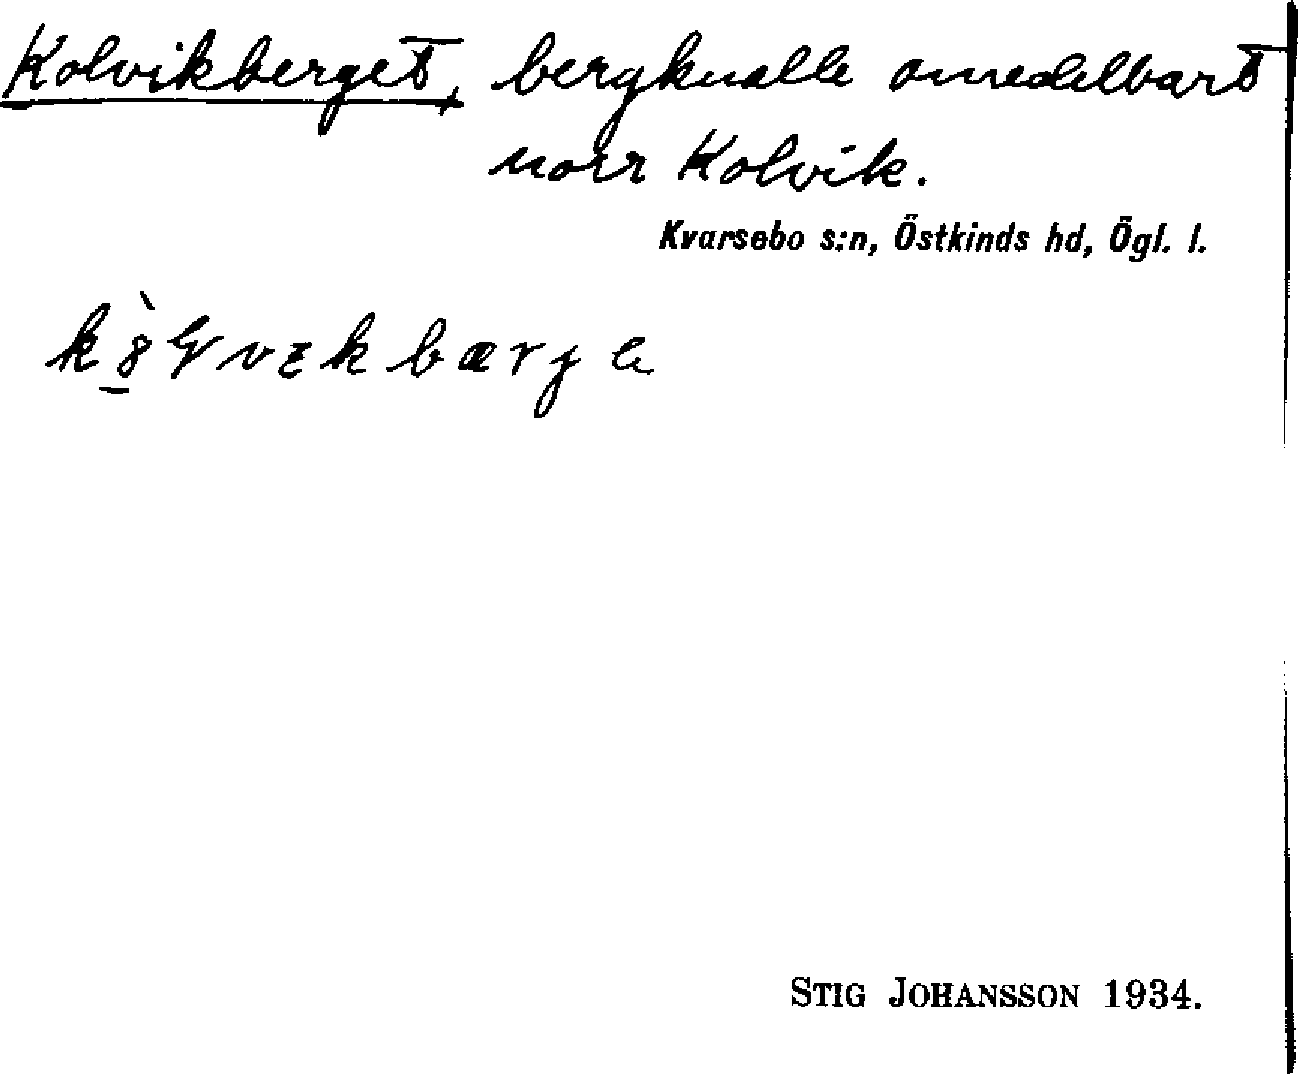 Kolvikberget, bergknalle omedelbart
norr Kolvik.
Kvarsebo s:n, Östkinds hd, Ögl. l.
STIG JOHANSSON 1934.